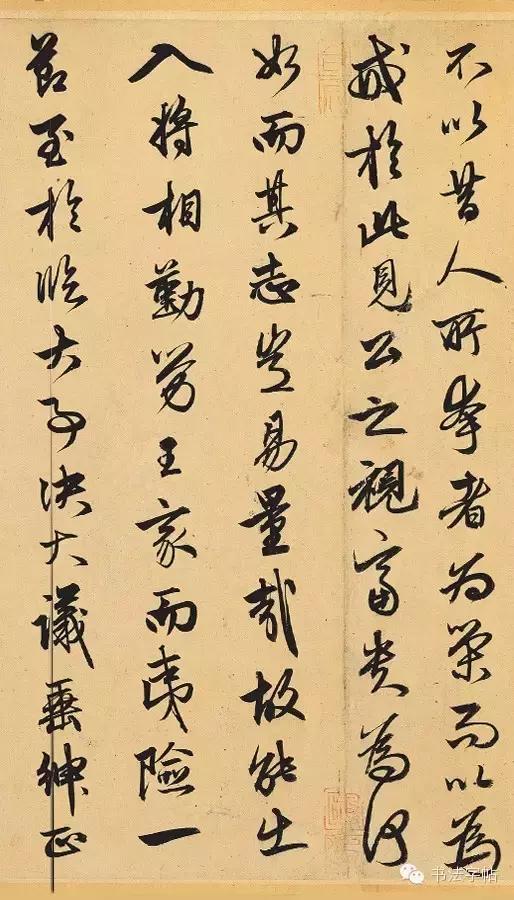 不以昔人所夸者为荣而以為
戒於此見公之視富贵為何
如而其志岂易量哉故能出
入将相勤劳王家而夷險一
節至於临大事决大議垂紳正
书法字帖